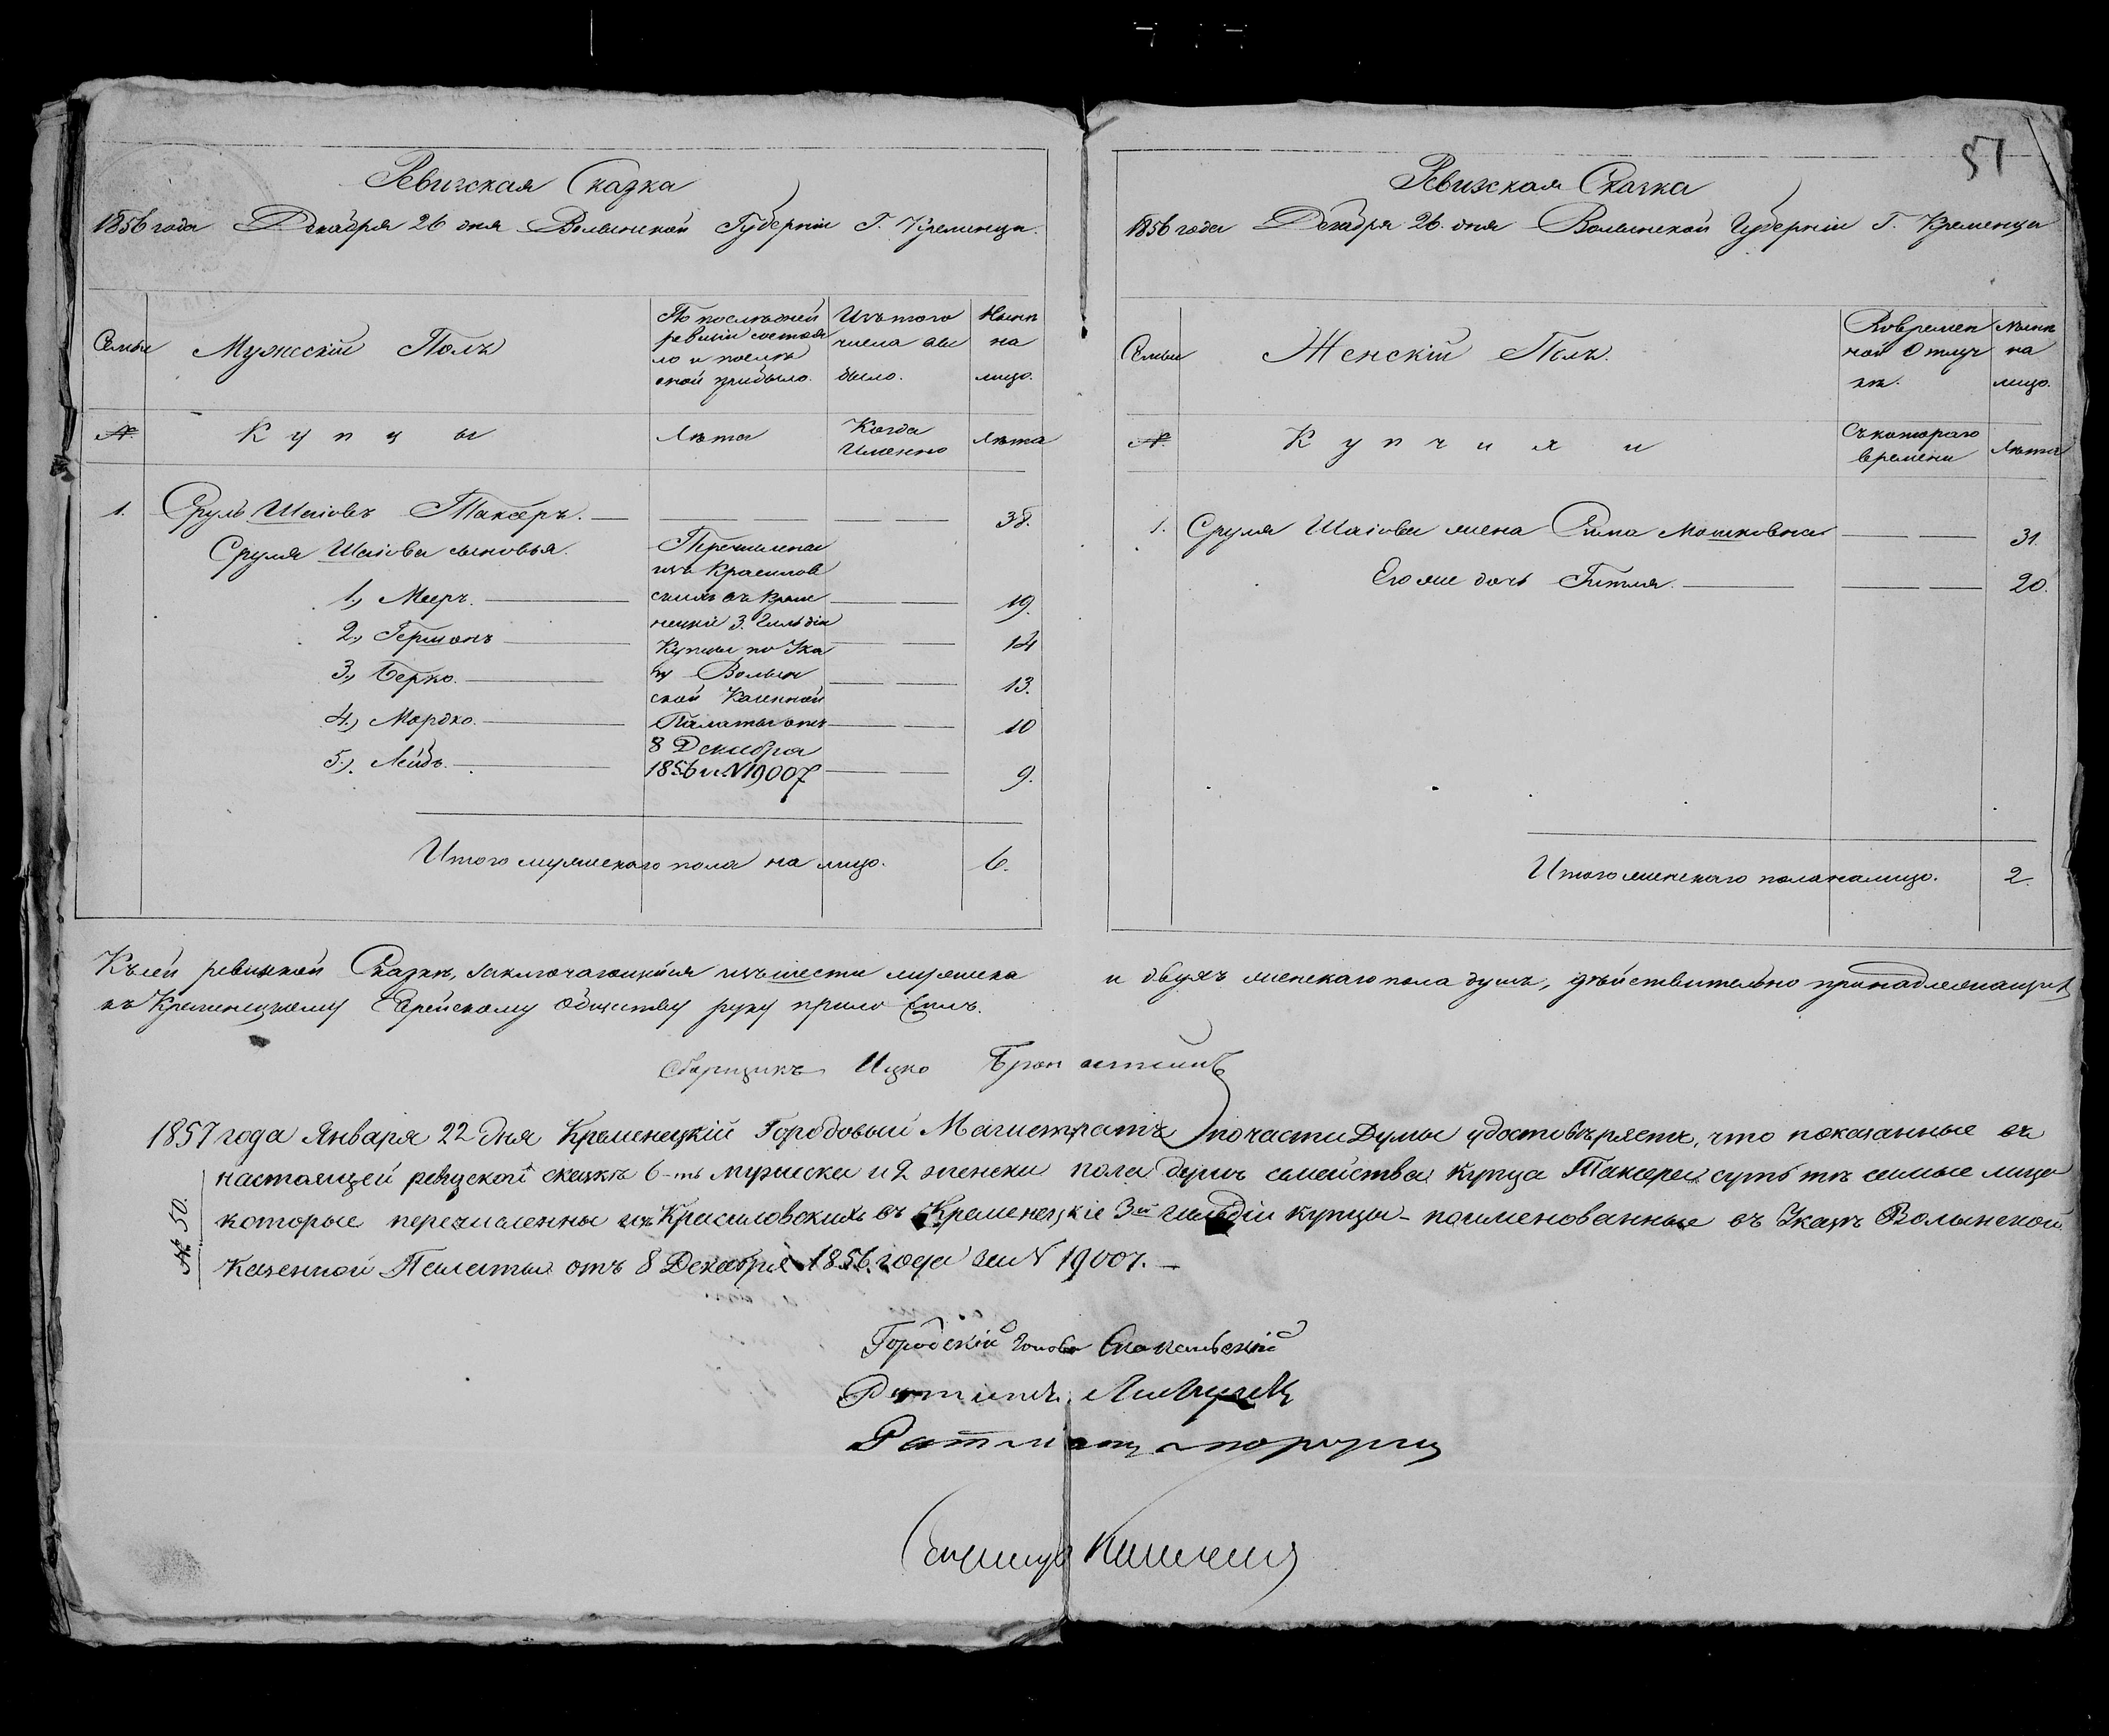 51
Ревижская Сказка
1856 года Декабря 26 дня Волынской Губерніи Г. Кременца.
Семьи
Мужескій Полъ
По послѣдней
ревизіи состоя
ло и послѣ
оной прибыло.
Изъ того
числа вы
было.
Нынѣ
на
лицо.
№.
Купцы
Лѣта
Когда
Именно
Лѣта
1. Сруль Шаіовъ Таксеръ. 38.
Сруля Шаіова сыновья.
1., Мееръ. 19.
2., Гершонъ 14
3., Берко. 13.
4., Мордко. 10
5.,. Лейбъ. 9.
Перечислены
изъ Красилов
скихъ въ Креме
нецкіе 3. Гильдіи
Купцы по Ука
зу Волын
ской Казенной
Палаты отъ
8 Декабря
1856 N 19007
Итого мужескаго пола на лицо. 6.
Ревижская Сказка
1856 года Декабря 26. дня Волынской Губерніи Г. Кременца
Семьи
Женскій Полъ.
Во времен
ной Отлуч
кѣ.
Нынѣ
на
лицо.
№.
Купчихи
Съ котораго
времени
Лѣта
1. Сруля Шаіова жена Рима Мошковна 31.
Его же дочь Гитля. 20.
Итого женскаго пола на лицо. 2.
Къ сей ревижской Сказкѣ, заключающейся изъ шести мужеска и двухъ женскаго пола душъ, дѣйствительно принадлежащихъ
къ Кременецкому Еврейскому Обществу руку приложилъ.
Сборщикъ Ицко
1857 года Января 22 дня Кременецкій Городовый Магистратъ по части Думы удостовѣряетъ, что показанные въ
настоящей ревизской сказкѣ 6-ть мужеска и 2 женска пола душъ семейства купца Таксера суть тѣ самые лица
которые перечислены изъ Красиловскихъ въ Кременецкіе 3ей гильдіи купцы - поименованные въ Указѣ Волынской
Казенной Палаты отъ 8 Декабря 1856 года за N 19007. —
№ 50.
Городскій Голова
Ратманъ
Ратманъ